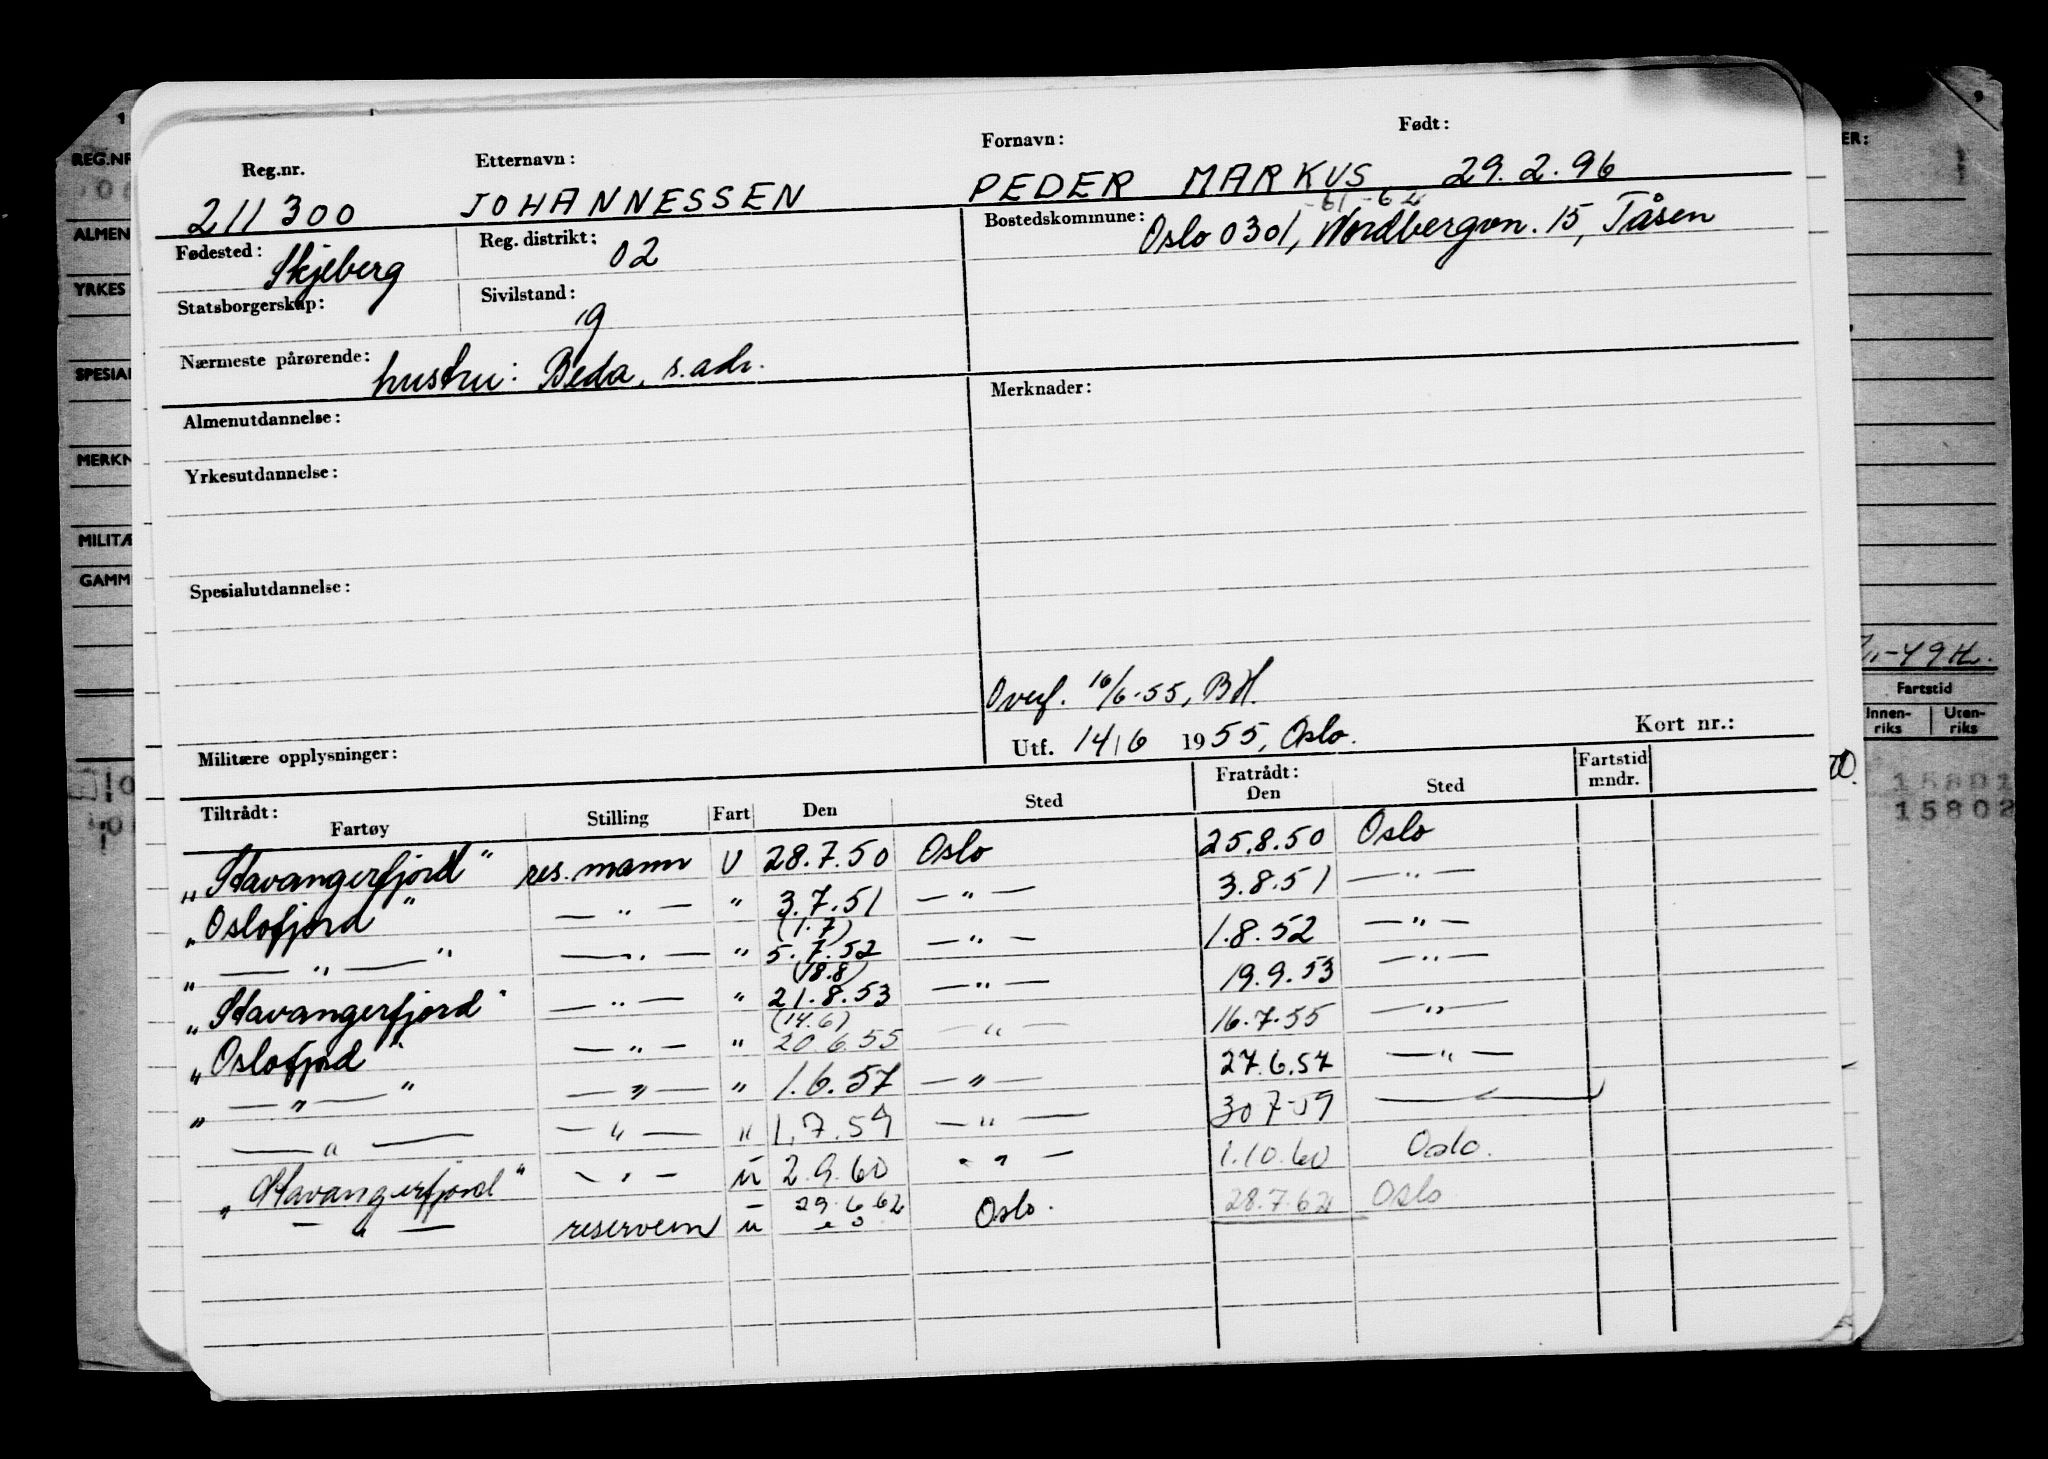 Reg.nr. Etternavn: Fornavn: Født:
211300 JOHANNESSEN PEDER MARKUS 29.2.96
Fødested: Skjeberg Reg. distrikt: 02 Bostedskommune: -61 -62
Oslo 0301, Nordbergvn. 15, Tåsen
Statsborgerskap: Sivilstand: g
Nærmeste pårørende: hustru: Beda, s. adr.
Almenutdannelse: Merknader:
Yrkesutdannelse:
Spesialutdannelse:
Overf. 16/6-55, BH.
Militære opplysninger: Utf. 14/6 1955, Oslo. Kort nr.:
Tiltrådt: Fratrådt: Fartstid
Fartøy Stilling Fart Den Sted Den Sted mndr.
"Stavangerfjord" res. mann U 28.7.50 Oslo 25.8.50 Oslo
"Oslofjord" — " — " 3.7.51 — " — 3.8.51 — " —
(1.7)
" — " — " — " — " 5.7.52 — " — 1.8.52 — " —
(18.8)
"Stavangerfjord" — " — " 21.8.53 — " — 19.9.53 — " —
(14.6)
"Oslofjord" — " — " 20.6.55 — " — 16.7.55 — " —
" — " — " — " — " 1.6.57 — " — 27.6.57 — " —
— " — — " — " 1.7.59 — " — 30 7-59 — " —
"Stavangerfjord" — " — u 2.9.60 " " — 1.10.60 Oslo.
— " — reservem u 29.6.62 Oslo. 28.7.62 Oslo
REG.NR
ALMEN
YRKES
SPESIAL
MERKN
MILITÆ
GAMM
ER:
-49
Fartstid
Innen-riks Uten-riks
15801
15802